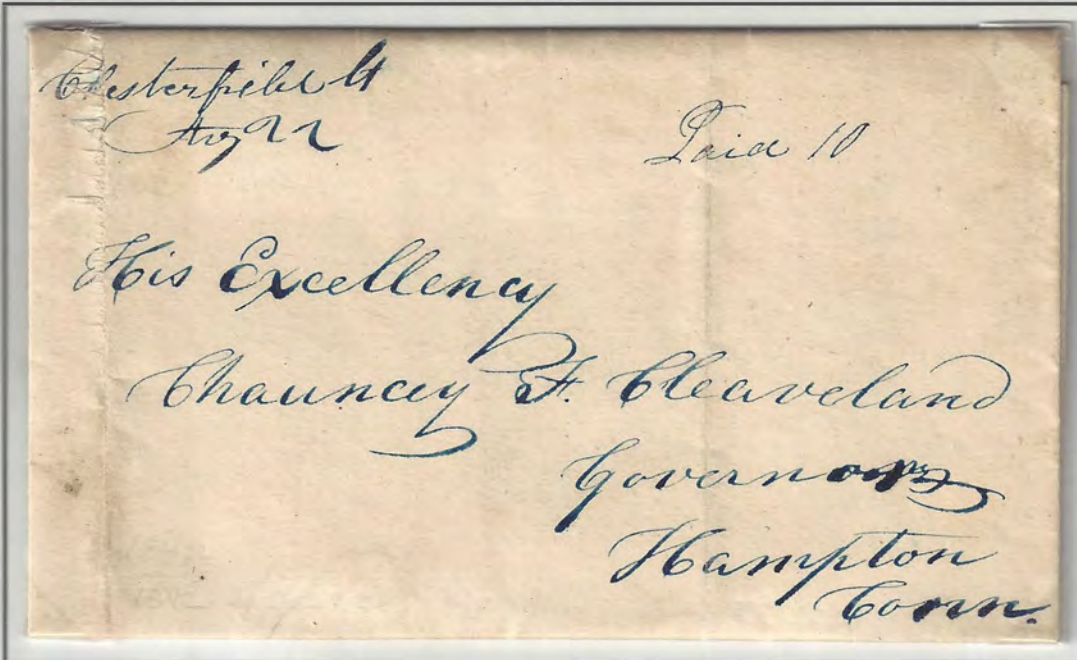 Chesterfield Ct
Aug 22
Paid 10
His Excellency
Chauncey F. Cleaveland
Governor
Hampton
Conn.